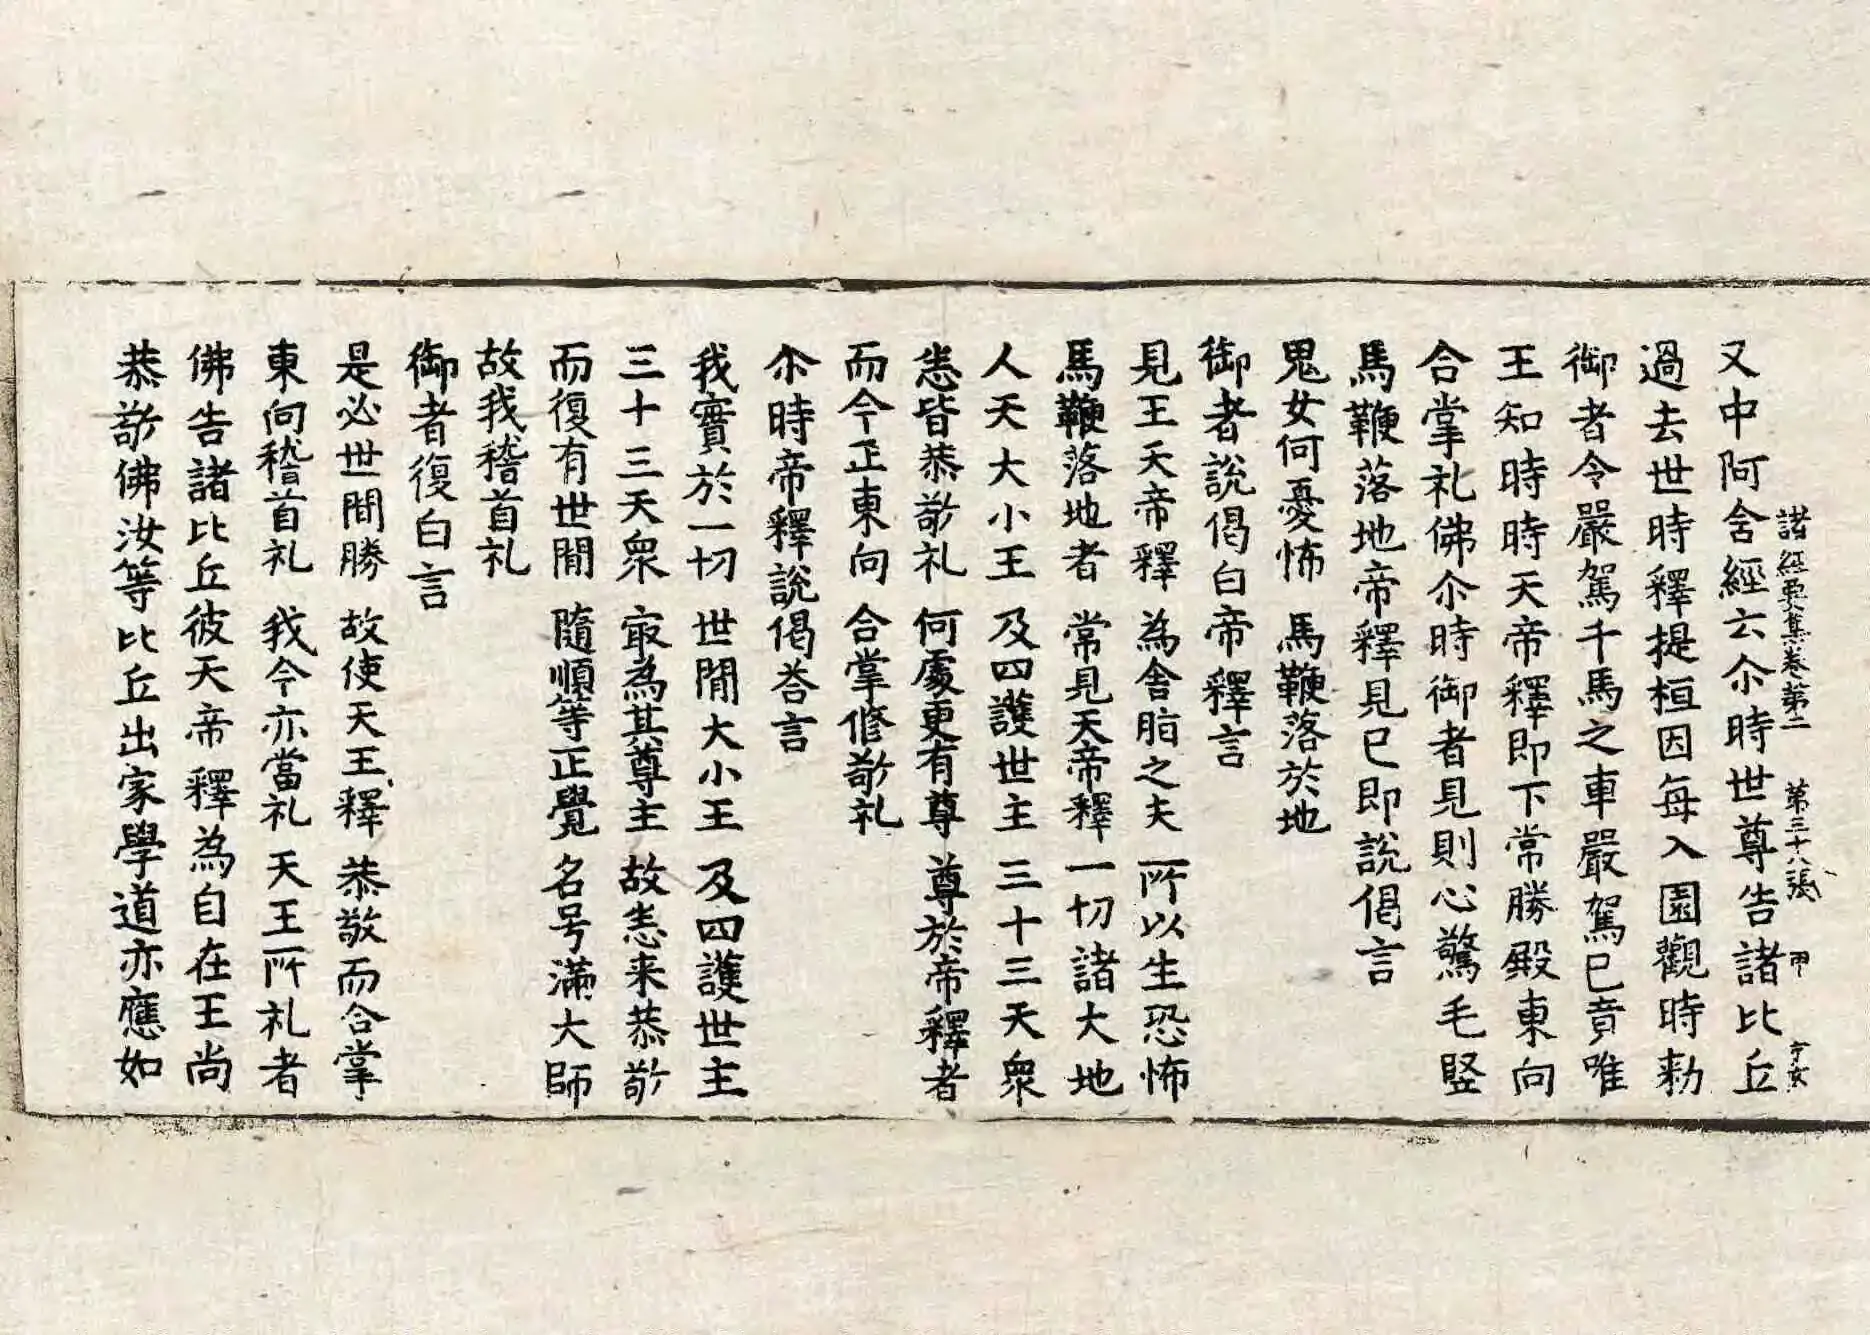 諸經要集卷第二　第三十八張　甲
又中阿含經云尒時世尊告諸比丘
過去世時釋提桓因每入園觀時勑
御者令嚴駕千馬之車嚴駕已賁唯
王知時時天帝釋即下常勝殿東向
合掌礼佛尒時御者見則心驚毛竪
馬鞭落地帝釋見已即說偈言
鬼女何憂怖　馬鞭落於地
御者說偈白帝釋言
見王天帝釋　為舍脂之夫　所以生恐怖
馬鞭落地者　常見天帝釋　一切諸大地
人天大小王　及四護世主　三十三天衆
悉皆恭敬礼　何處更有尊　尊於帝釋者
而今正東向　合掌修敬礼
尒時帝釋說偈荅言
我實於一切　世間大小王　及四護世主
三十三天衆　冣為其尊主　故悉来恭敬
而復有世間　隨順等正覺　名号滿大師
故我稽首礼
御者復白言
是必世間勝　故使天王釋　恭敬而合掌
東向稽首礼　我今亦當礼　天王所礼者
佛告諸比丘彼天帝釋為自在王尚
恭敬佛汝等比丘出家學道亦應如